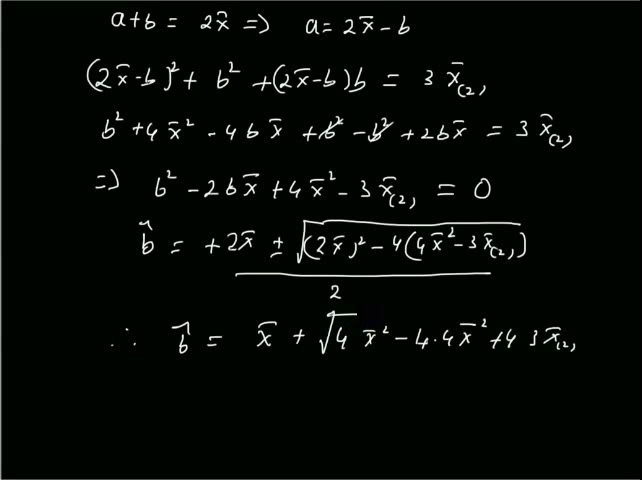 a+b = 2x̄ => a = 2x̄ - b
(2x̄-b)² + b² + (2x̄-b)b = 3 x̄₍₂₎
b² + 4x̄² - 4bx̄ + b² - b² + 2bx̄ = 3 x̄₍₂₎
=> b² - 2bx̄ + 4x̄² - 3x̄₍₂₎ = 0
b̂ = +2x̄ ± √((2x̄)² - 4(4x̄² - 3x̄₍₂₎)) / 2
∴ b̂ = x̄ + √4 x̄² - 4·4x̄² + 4 3x̄₍₂₎